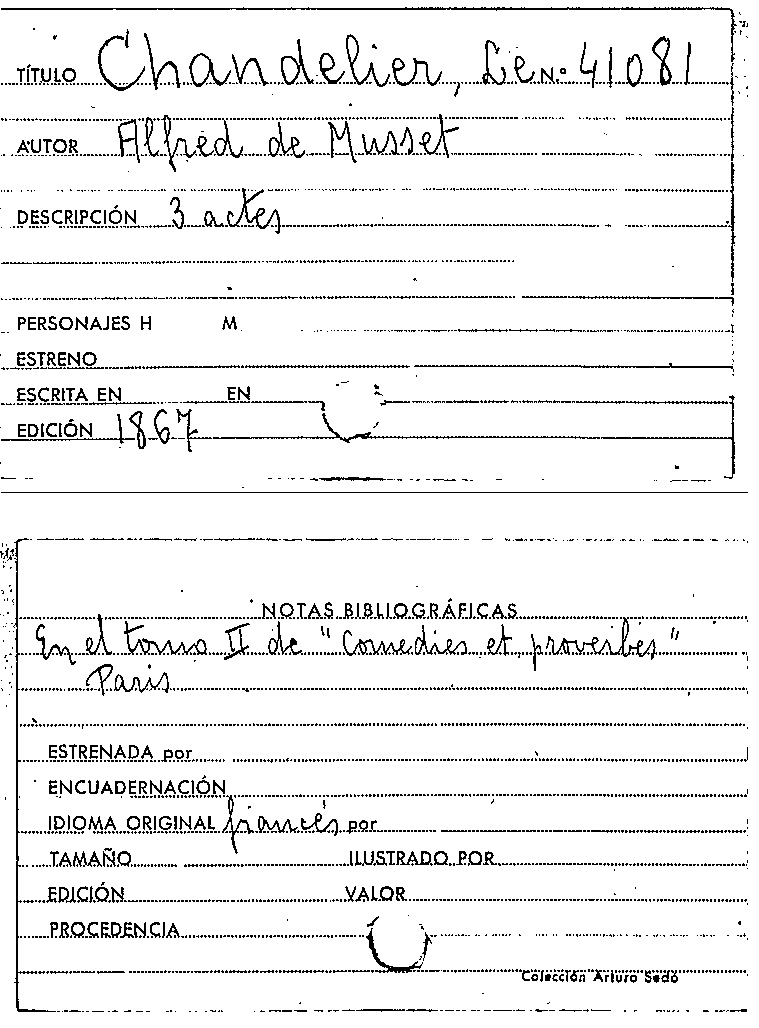 TÍTULO Chandelier, Le N.º 41081
AUTOR Alfred de Musset
DESCRIPCIÓN 3 actes
PERSONAJES H M
ESTRENO
ESCRITA EN EN
EDICIÓN 1867
NOTAS BIBLIOGRÁFICAS
En el tomo II de "Comedies et proverbes"
Paris
ESTRENADA por
ENCUADERNACIÓN
IDIOMA ORIGINAL francés por
TAMAÑO ILUSTRADO POR
EDICIÓN VALOR
PROCEDENCIA
Colección Arturo Sedó